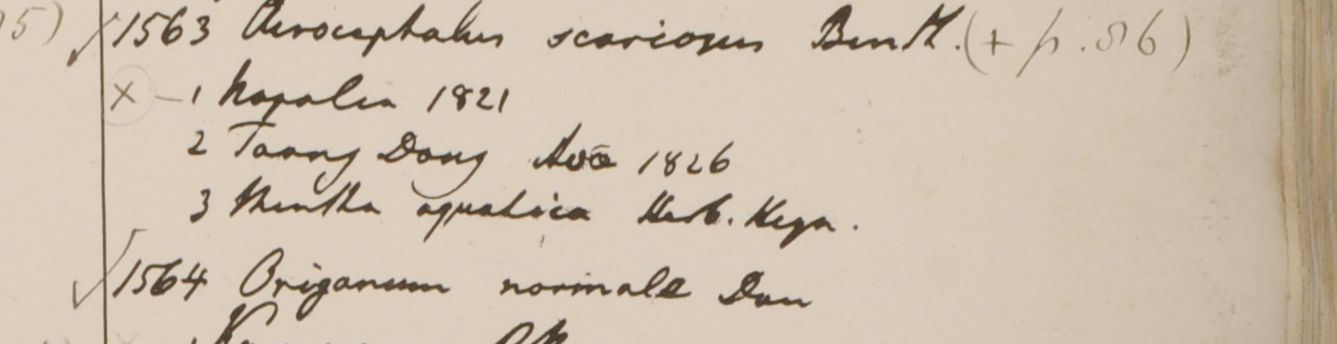 5) ✓ 1563 Acrocephalus scariosus Benth. (+ p. 86)
× – 1 Napalia 1821
2 Taong Dong Ava 1826
3 Mentha aquatica Herb. Heyn.
✓ 1564 Origanum normale Don